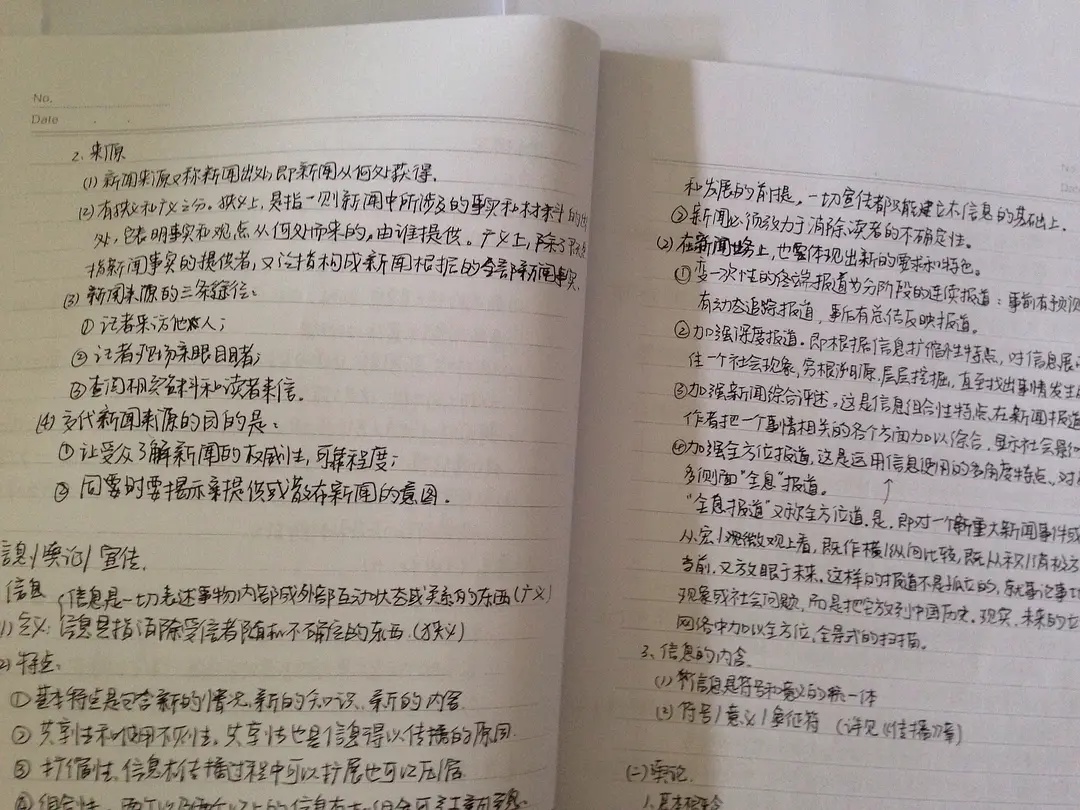 No.
Date
2、来源
(1) 新闻来源又称新闻出处,即新闻从何处获得。
(2) 有狭义和广义之分。狭义上,是指一则新闻中所涉及的事实和材料的出
处,它表明事实和观点从何处而来的,由谁提供。广义上,除了
指新闻事实的提供者,又泛指构成新闻根据的全部新闻事实.
(3) 新闻来源的三条途径:
① 记者采访他人;
② 记者现场亲眼目睹;
③ 查阅相关资料和读者来信。
(4) 交代新闻来源的目的是:
① 让受众了解新闻的权威性,可靠程度;
② 同要时要揭示亲提供或诸存新闻的意图.
信息/舆论/宣传.
信息 信息是一切表述事物内部或外部互动状态或关系的东西(广义)
1) 定义: 信息是指消除受信者随机不确定的东西.(狭义)
2) 特点:
① 基本特点是包含新的情况、新的知识、新的内容
② 共享性和使用不灭性。共享性也是信息得以传播的原因.
③ 扩缩性。信息在传播过程中可以扩展也可以压缩.
④ 组合性。两个以及两个以上的信息
No
和发展的前提。一切宣传都只能建立在信息的基础上.
② 新闻必须致力于消除读者的不确定性。
(2) 在新闻业务上,也要体现出新的要求和特色。
① 变一次性的终端报道为分阶段的连续报道:事前有预测
有动态追踪报道,事后有总结反映报道。
② 加强深度报道.即根据信息扩缩性特点,对信息展
住一个社会现象,穷根溯源,层层挖掘,直至找出事情发生
③ 加强新闻综合评述。这是信息组合性特点,在新闻报道
作者把一个事情相关的各个方面加以综合,显示社会最
④ 加强全方位报道,这是运用信息使用的多角度特点,对
多侧面"全息"报道。
"全息报道"又称全方位道.是,即对一个新重大新闻事件或
从宏/观微观上看,既作横/纵向比较,既从积/消极方
当前,又放眼于未来。这样的报道不是孤立的,就事论事
现象或社会问题,而是把它放到中国历史、现实、未来的立
网络中加以全方位,全景式的扫描。
3、信息的内含
(1) 新信息是符号和意义的统一体
(2) 符号/意义/象征符 (详见《传播》章)
(二) 舆论
1. 基本概念